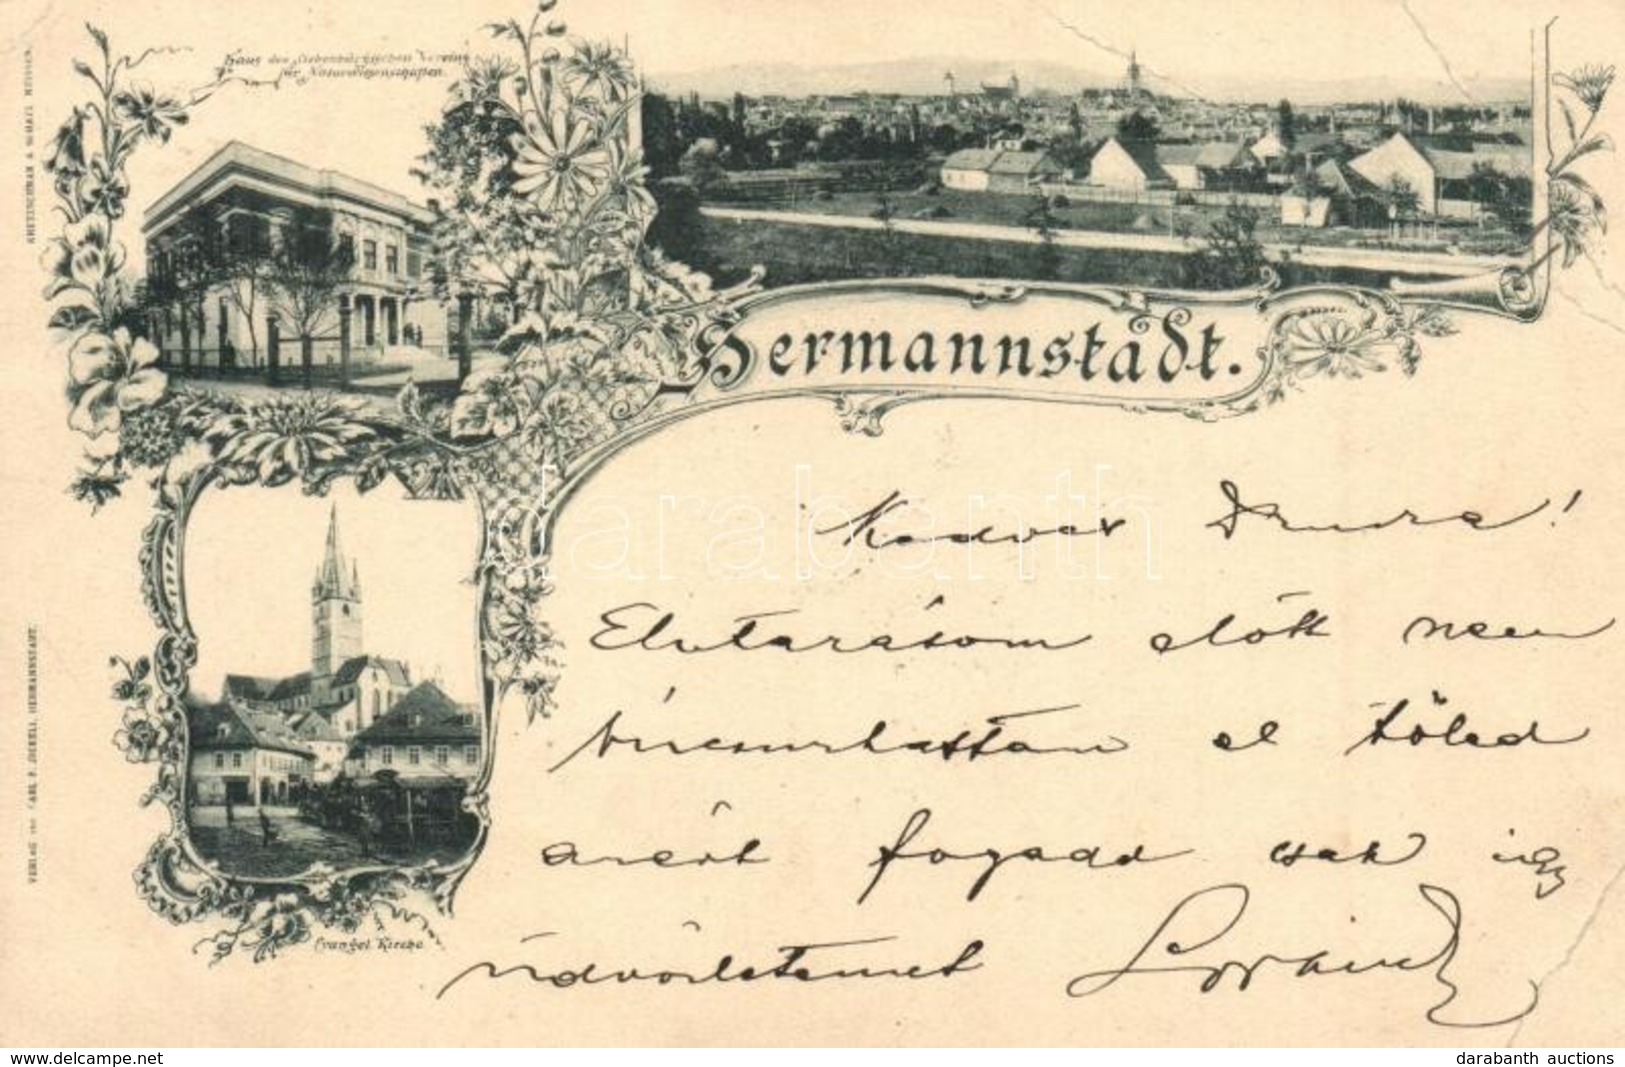 Haus des Siebenbürgischen Vereins
für Naturwissenschaften.
Hermannstadt.
darabanth
Kedves
Elutazásom előtt nem
búcsúzhattam el tőled
azért fogadd csak így
üdvözletemet
Evangel. Kirche
VERLAG von CARL F. JICKELI, HERMANNSTADT.
www.delcampe.net
darabanth auctions